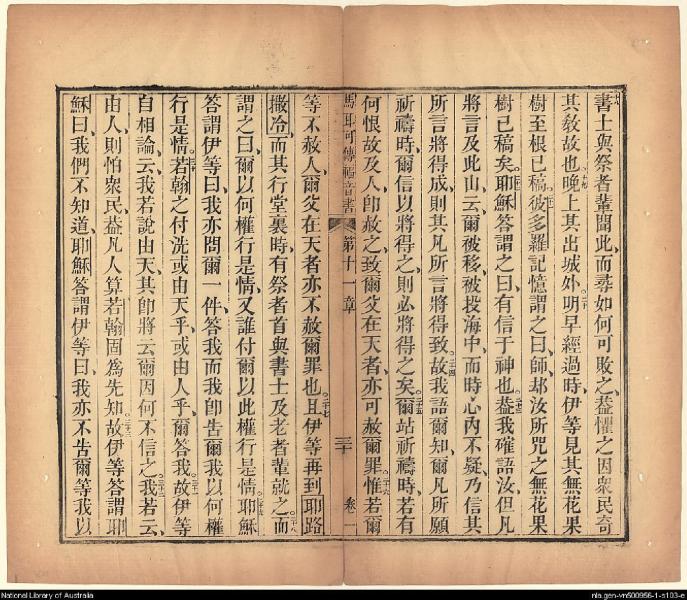 十八書士與祭者輩聞此而尋如何可敗之蓋懼之因衆民奇
其教故也十九晚上其出城外二十明早經過時伊等見其無花果
樹至根已稿二十一彼多羅記憶謂之曰師却汝所咒之無花果
樹已稿矣二十二耶穌答謂之曰有信于神也二十三蓋我確語汝但凡
將言及此山云爾被移被投海中而時心內不疑乃信其
所言將得成則其凡所言將得致故二十四故我語爾知爾凡所願
祈禱時爾信以將得之則必將得之矣二十五爾站祈禱時若有
何恨故及人即赦之致爾父在天者亦可赦爾罪二十六惟若爾
馬耶可傳福音書 第十一章 三十 卷二
等不赦人爾父在天者亦不赦爾罪也二十七且伊等再到耶路
撒冷而其行堂裏時有祭者首與書士及老者輩就之二十八而
謂之曰爾以何權行是情又誰付爾以此權行是情二十九耶穌
答謂伊等曰我亦問爾一件答我而我即告爾我以何權
行是情三十若翰之付洗或由天乎或由人乎爾答我三十一故伊等
自相論云我若說由天其即將云爾因何不信之三十二我若云
由人則怕衆民蓋凡人算若翰固爲先知三十三故伊等答謂耶
穌曰我們不知道耶穌答謂伊等曰我亦不告爾等我以
National Library of Australia
nla.gen-vn500956-1-s103-e